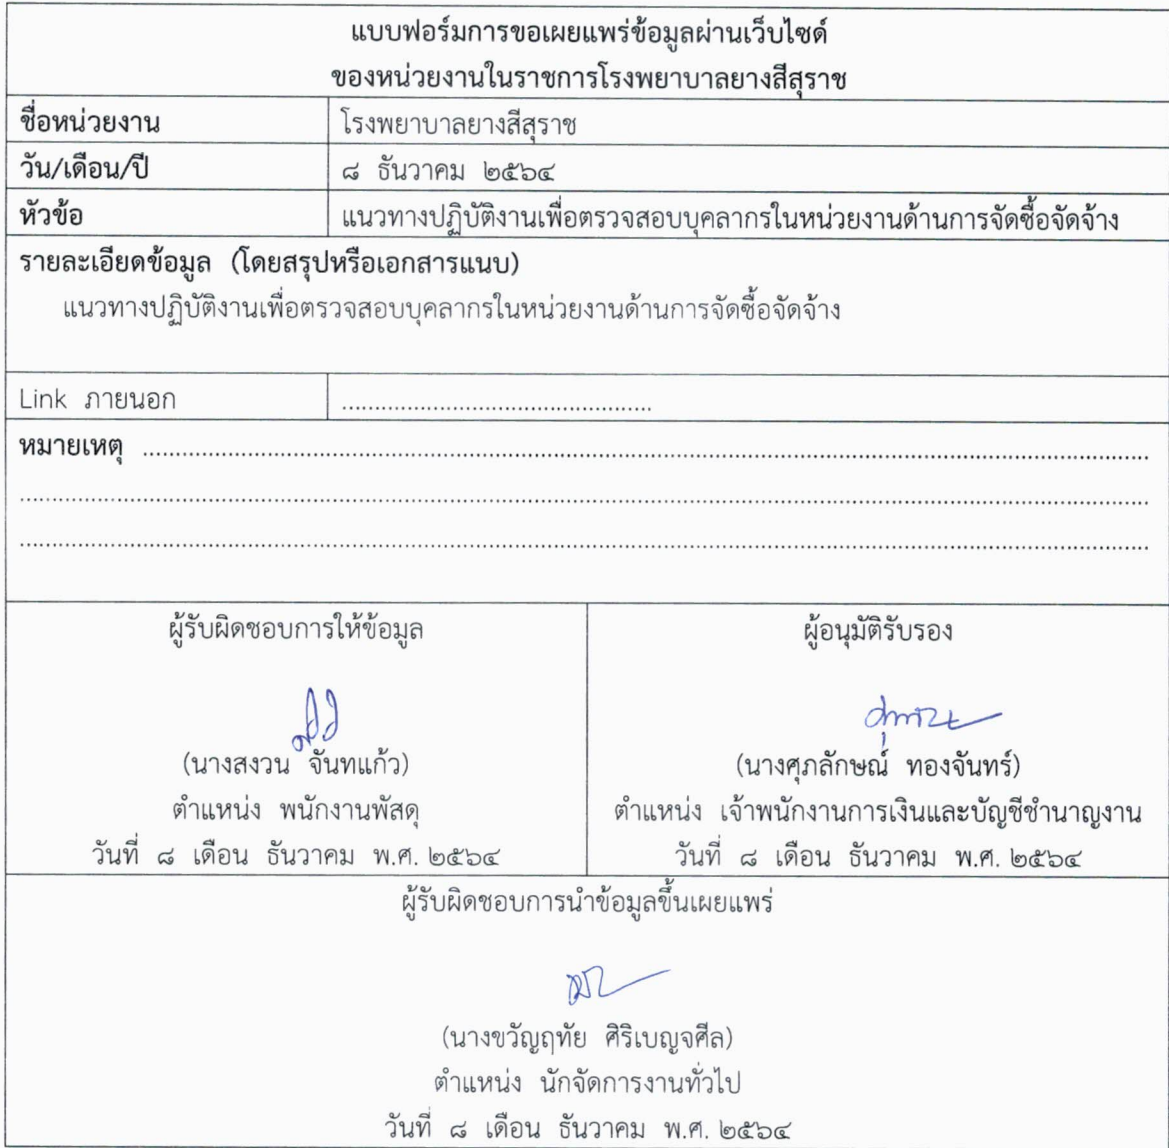 แบบฟอร์มการขอเผยแพร่ข้อมูลผ่านเว็บไซต์
ของหน่วยงานในราชการโรงพยาบาลยางสีสุราช
ชื่อหน่วยงาน โรงพยาบาลยางสีสุราช
วัน/เดือน/ปี ๘ ธันวาคม ๒๕๖๔
หัวข้อ แนวทางปฏิบัติงานเพื่อตรวจสอบบุคลากรในหน่วยงานด้านการจัดซื้อจัดจ้าง
รายละเอียดข้อมูล (โดยสรุปหรือเอกสารแนบ)
แนวทางปฏิบัติงานเพื่อตรวจสอบบุคลากรในหน่วยงานด้านการจัดซื้อจัดจ้าง
Link ภายนอก ................................................
หมายเหตุ ................................................
................................................
................................................
ผู้รับผิดชอบการให้ข้อมูล
(นางสงวน จันทแก้ว)
ตำแหน่ง พนักงานพัสดุ
วันที่ ๘ เดือน ธันวาคม พ.ศ. ๒๕๖๔
ผู้อนุมัติรับรอง
(นางศุภลักษณ์ ทองจันทร์)
ตำแหน่ง เจ้าพนักงานการเงินและบัญชีชำนาญงาน
วันที่ ๘ เดือน ธันวาคม พ.ศ. ๒๕๖๔
ผู้รับผิดชอบการนำข้อมูลขึ้นเผยแพร่
(นางขวัญฤทัย ศิริเบญจศีล)
ตำแหน่ง นักจัดการงานทั่วไป
วันที่ ๘ เดือน ธันวาคม พ.ศ. ๒๕๖๔